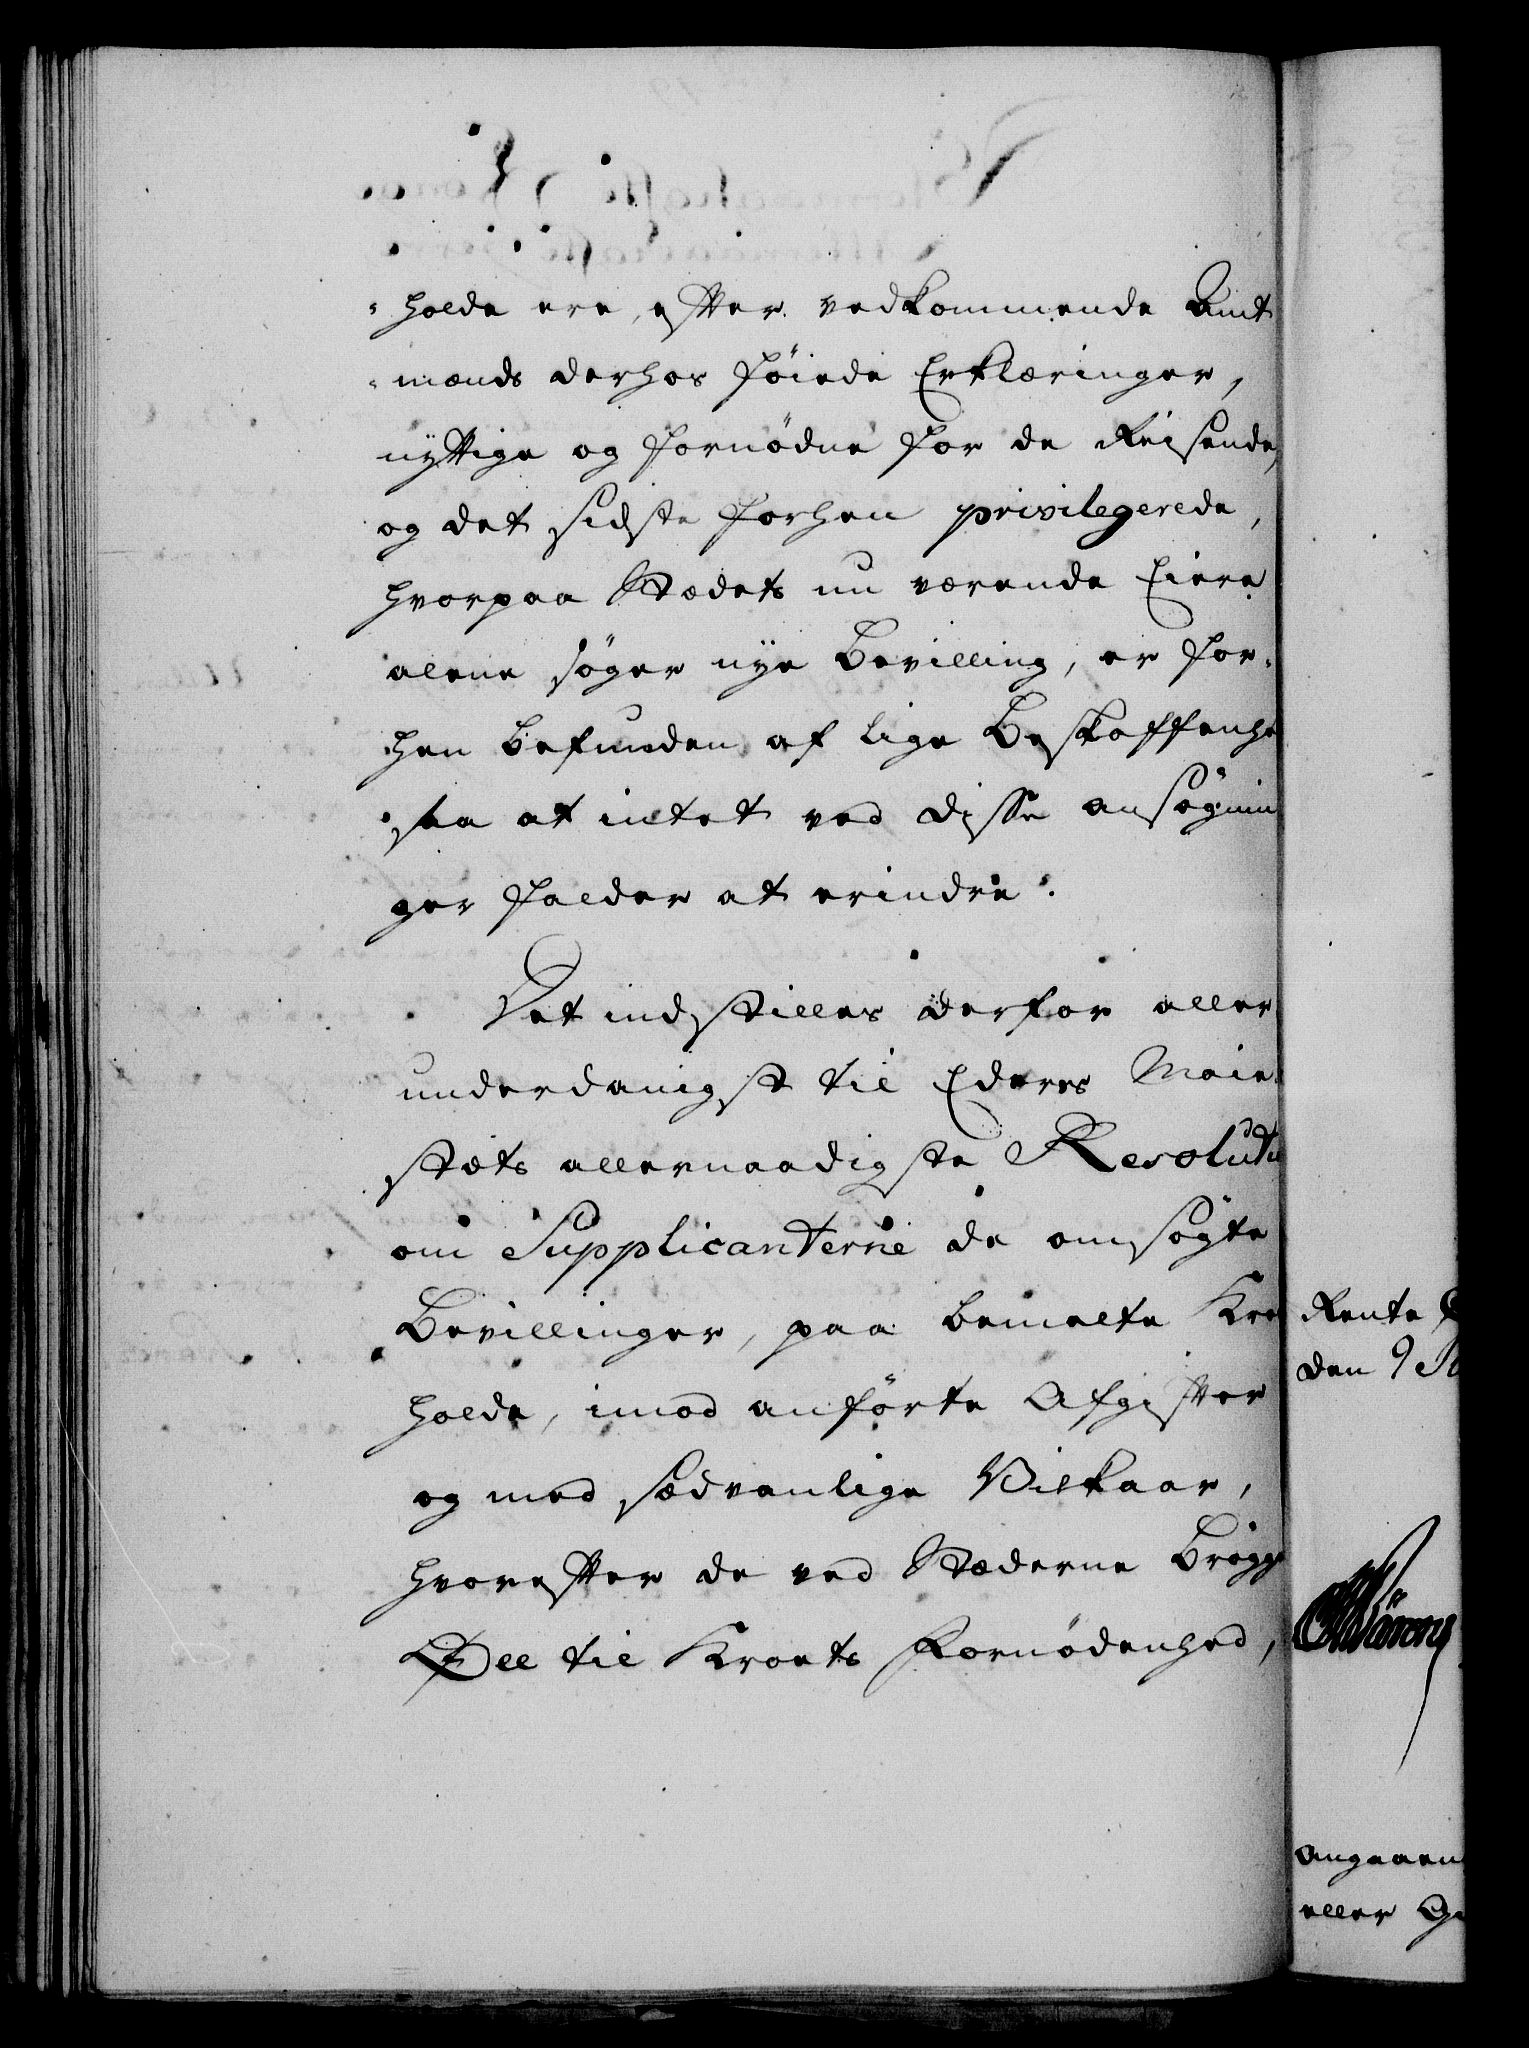 holde ere, efter vedkommende Amt
mænds derhos föiede Erklæringer,
nyttige og fornödne for de Reisende,
og det sidste forhen privilegerede,
hvorpaa Stædets nu værende Eiere
alene söger nye Bevilling, er for-
hen befunden af lige Beskaffenhe
saa at intet ved disse ansögnin
ger falder at erindre.
Det indstilles derfor aller
underdanigst til Eders Maie
stæts allernaadigste Resolutio
om Supplicanterne de ansögte
Bevillinger, paa bemelte Kro
holde, imod anförte Afgifter
og med sædvanlige Vilkaar,
hvorefter de ved Stæderne brögge
Öll til Kroets Fornödenhed,
Rente
den 9
angaaen
eller